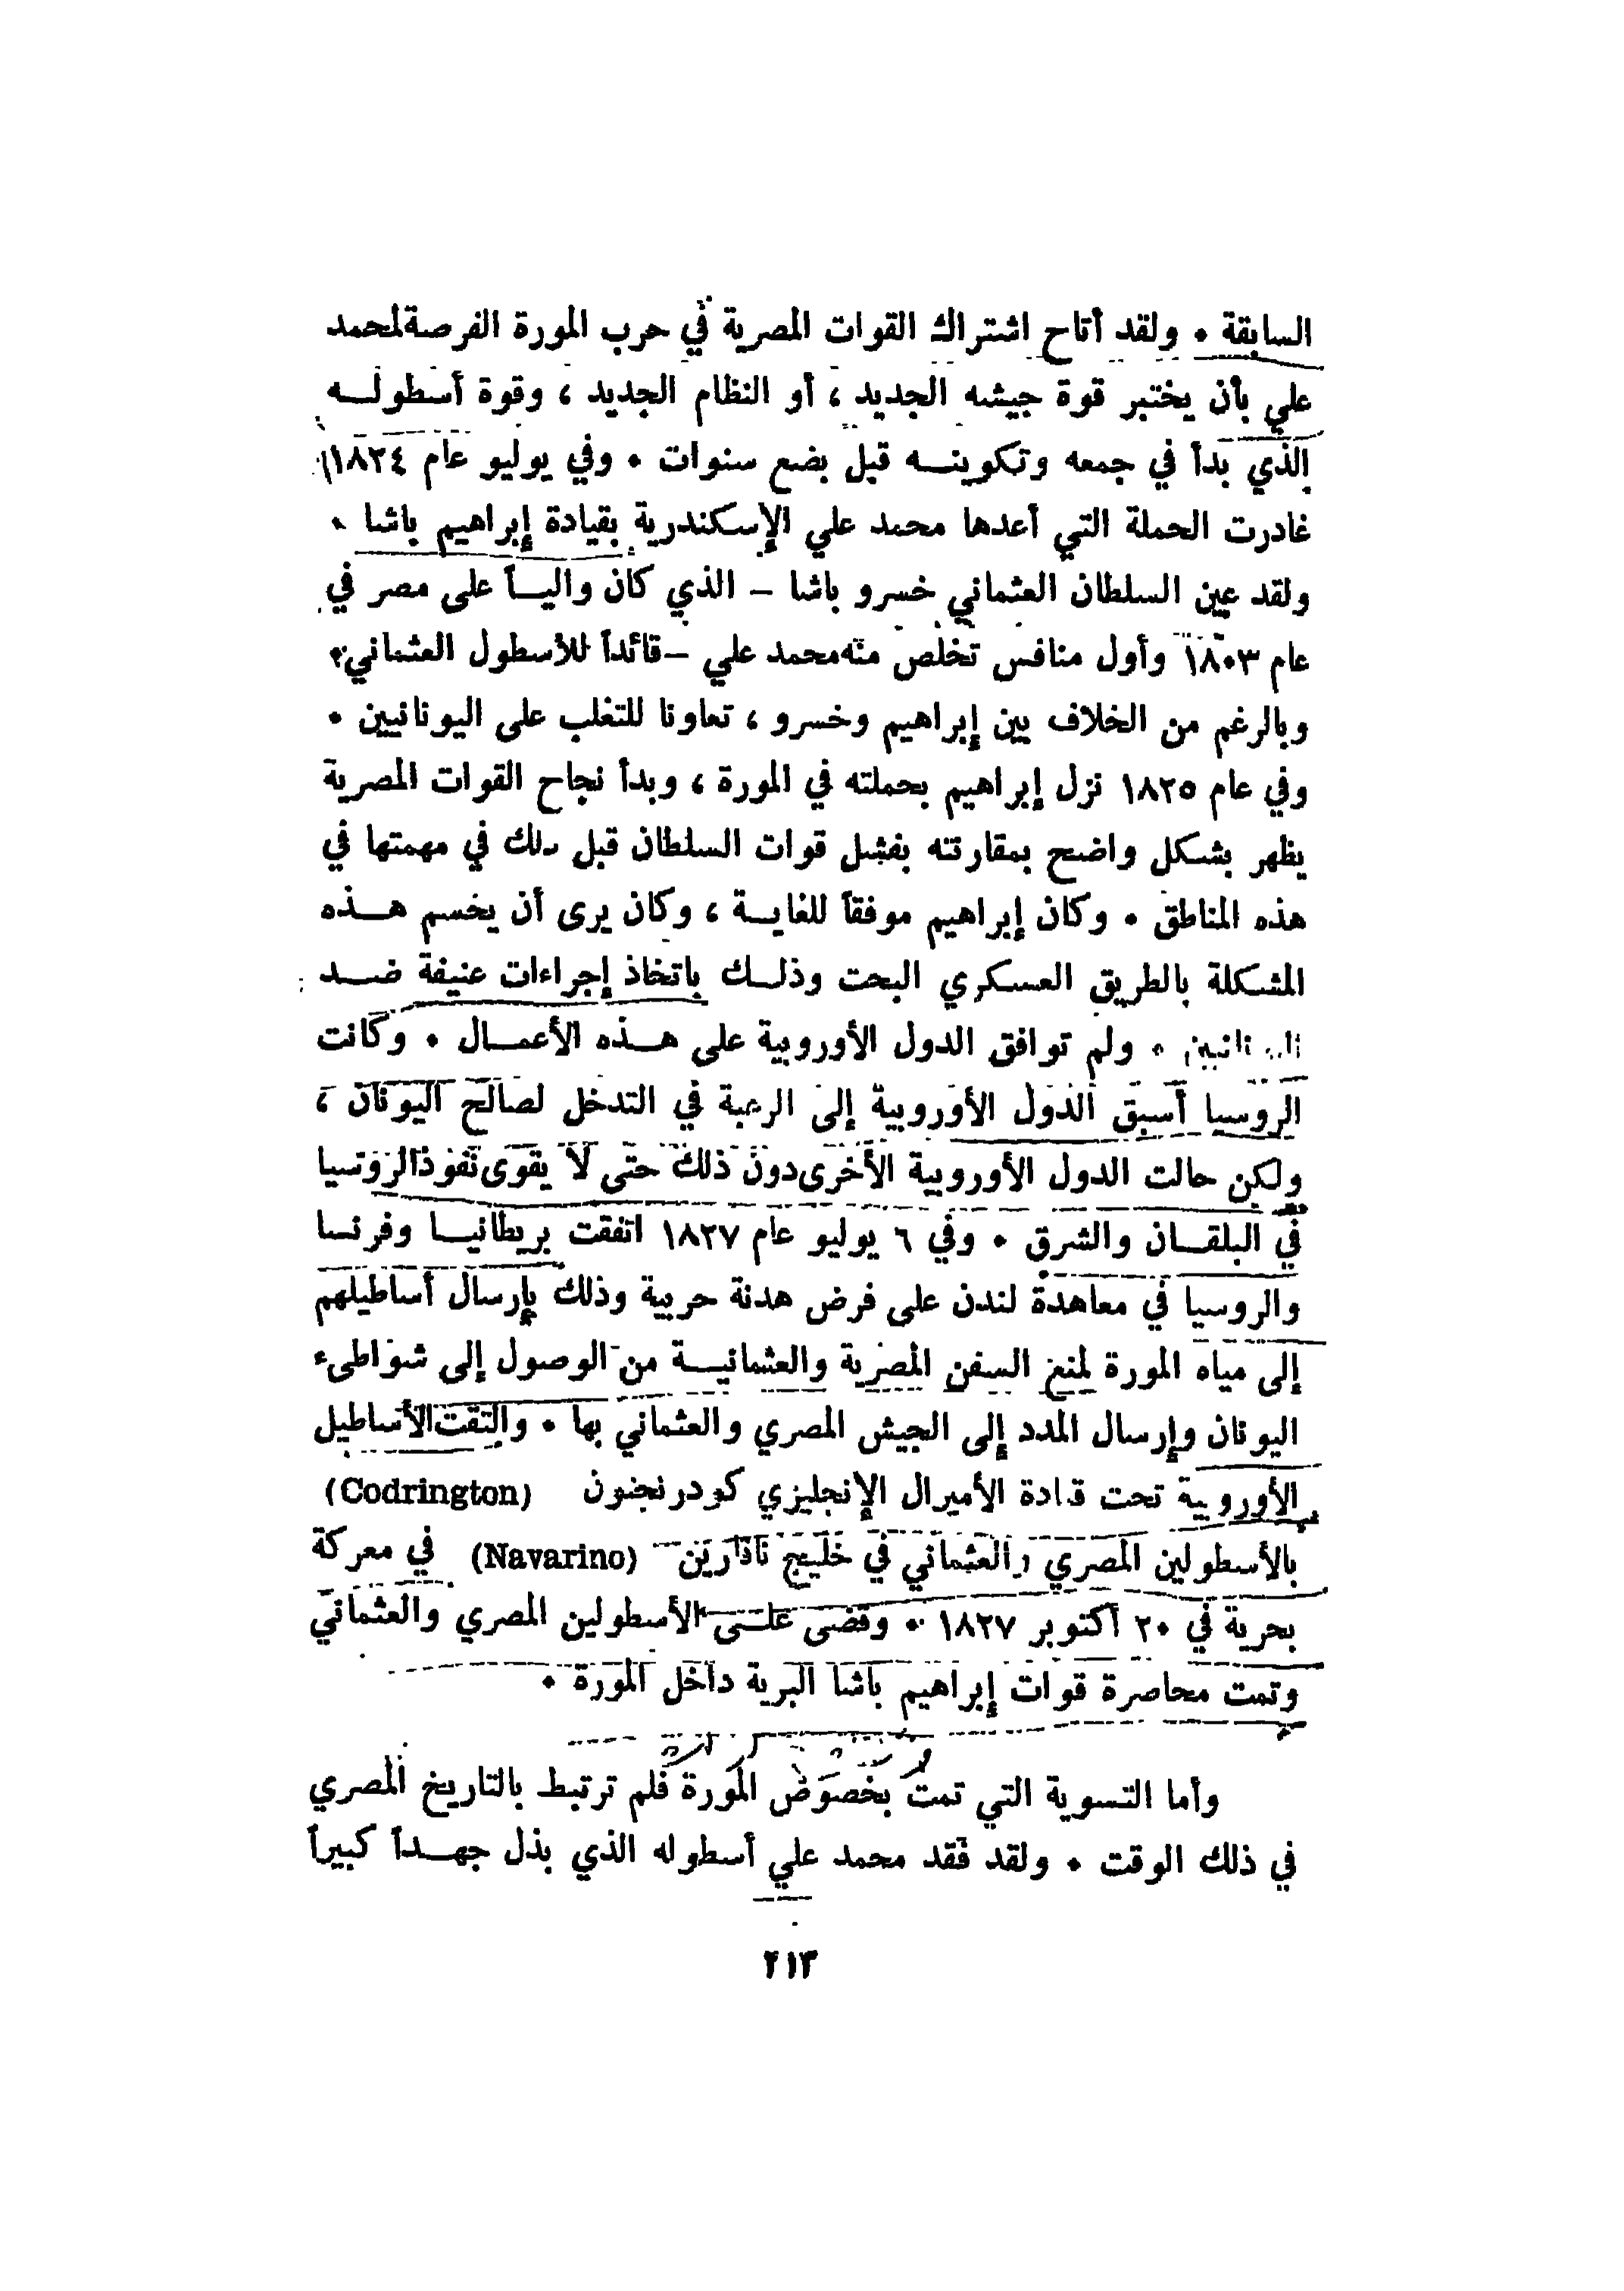 السابقة . ولقد أتاح اشتراك القوات المصرية في حرب المورة الفرصة لمحمد
علي بأن يختبر قوة جيشه الجديد ، أو النظام الجديد ، وقوة أسطولـــه
الذي بدأ في جمعه وتكوينـــه قبل بضع سنوات . وفي يوليو عام ١٨٢٤
غادرت الحملة التي أعدها محمد علي الإسكندرية بقيادة إبراهيم باشا .
ولقد عين السلطان العثماني خسرو باشا – الذي كان واليـــاً على مصر في
عام ١٨٠٣ وأول منافس تخلص منه محمد علي – قائداً للأسطول العثماني .
وبالرغم من الخلاف بين إبراهيم وخسرو ، تعاونا للتغلب على اليونانيين .
وفي عام ١٨٢٥ نزل إبراهيم بحملته في المورة ، وبدأ نجاح القوات المصرية
يظهر بشكل واضح بمقارنته بفشل قوات السلطان قبل ذلك في مهمتها في
هذه المناطق . وكان إبراهيم موفقاً للغايـــة ، وكان يرى أن يحسم هـــذه
المشكلة بالطريق العسكري البحت وذلـــك باتخاذ إجراءات عنيفة ضـــد
اليونانيين . ولم توافق الدول الأوروبية على هـــذه الأعمـــال . وكانت
الروسيا أسبق الدول الأوروبية إلى الرغبة في التدخل لصالح اليونان ،
ولكن حالت الدول الأوروبية الأخرى دون ذلك حتى لا يقوى نفوذ الروسيا
في البلقـــان والشرق . وفي ٦ يوليو عام ١٨٢٧ اتفقت بريطانيـــا وفرنسا
والروسيا في معاهدة لندن على فرض هدنة حربية وذلك بإرسال أساطيلهم
إلى مياه المورة لمنع السفن المصرية والعثمانيـــة من الوصول إلى شواطىء
اليونان وإرسال المدد إلى الجيش المصري والعثماني بها . والتقت الأساطيل
الأوروبية تحت قيادة الأميرال الإنجليزي كودرنجتون (Codrington)
بالأسطولين المصري والعثماني في خليج نافارين (Navarino) في معركة
بحرية في ٢٠ أكتوبر ١٨٢٧ . وقضى علـــى الأسطولين المصري والعثماني
وتمت محاصرة قوات إبراهيم باشا البرية داخل المورة .
وأما التسوية التي تمت بخصوص المورة فلم ترتبط بالتاريخ المصري
في ذلك الوقت . ولقد فقد محمد علي أسطوله الذي بذل جهـــداً كبيراً
٢١٣